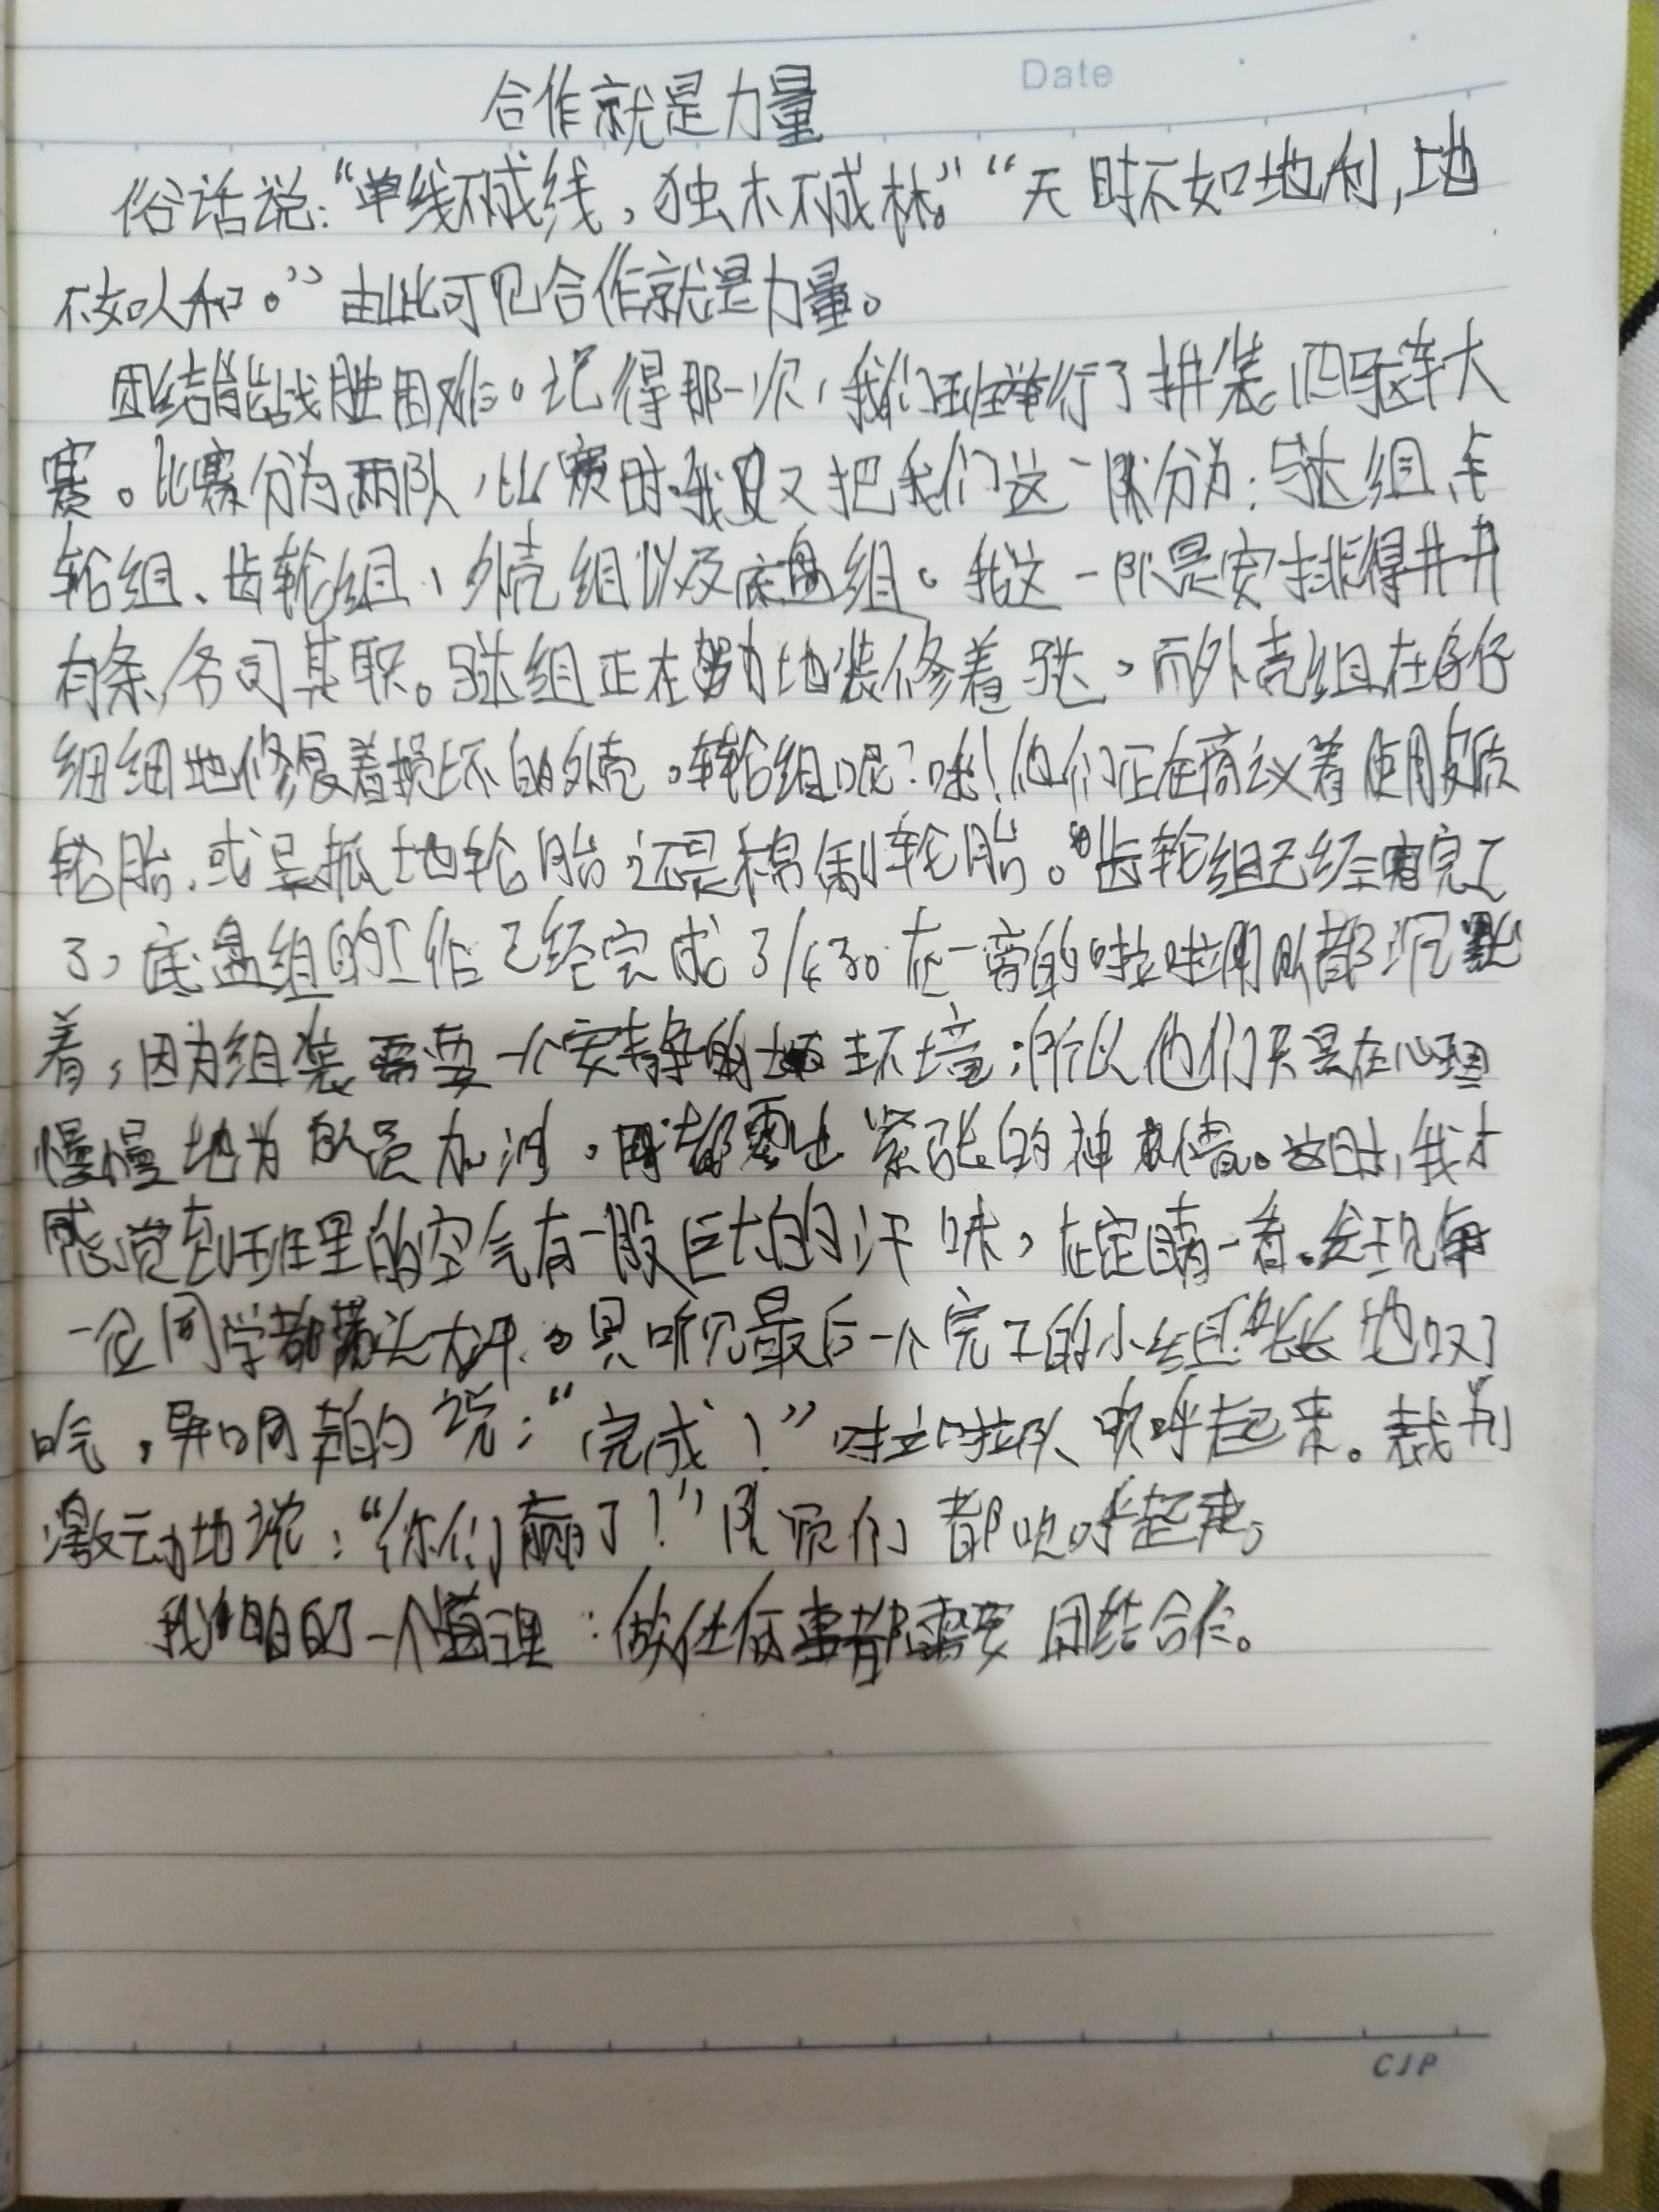 Date
合作就是力量
俗话说:“单线不成线,独木不成林。”“天时不如地利,地
不如人和。”由此可见合作就是力量。
团结能战胜困难。记得那一次,我们班举行了拼装四驱车大
赛。比赛分为两队,比赛时我又把我们这一队分为:马达组、车
轮组、齿轮组、外壳组以及底盘组。我这一队是安排得井井
有条,各司其职。马达组正在努力地装修着马达,而外壳组在仔仔
细细地修复着损坏的外壳。车轮组呢?哦!他们正在商议着使用皮质
轮胎,或是抓地轮胎还是棉制轮胎。齿轮组已经完工
了,底盘组的工作已经完成3/4了。在一旁的啦啦队都沉默
着,因为组装需要一个安静的环境,所以他们只是在心里
慢慢地为队员加油。都露出紧张的神情。这时,我才
感觉到班里的空气有一股巨大的汗味,在定睛一看。发现每
一位同学都满头大汗。只听见最后一个完工的小组长长地叹了
口气,异口同声的说:“完成!”啦啦队欢呼起来。裁判
激动地说:“你们赢了!”队员们都欢呼起来。
我明白了一个道理:做任何事都需要团结合作。
CJP